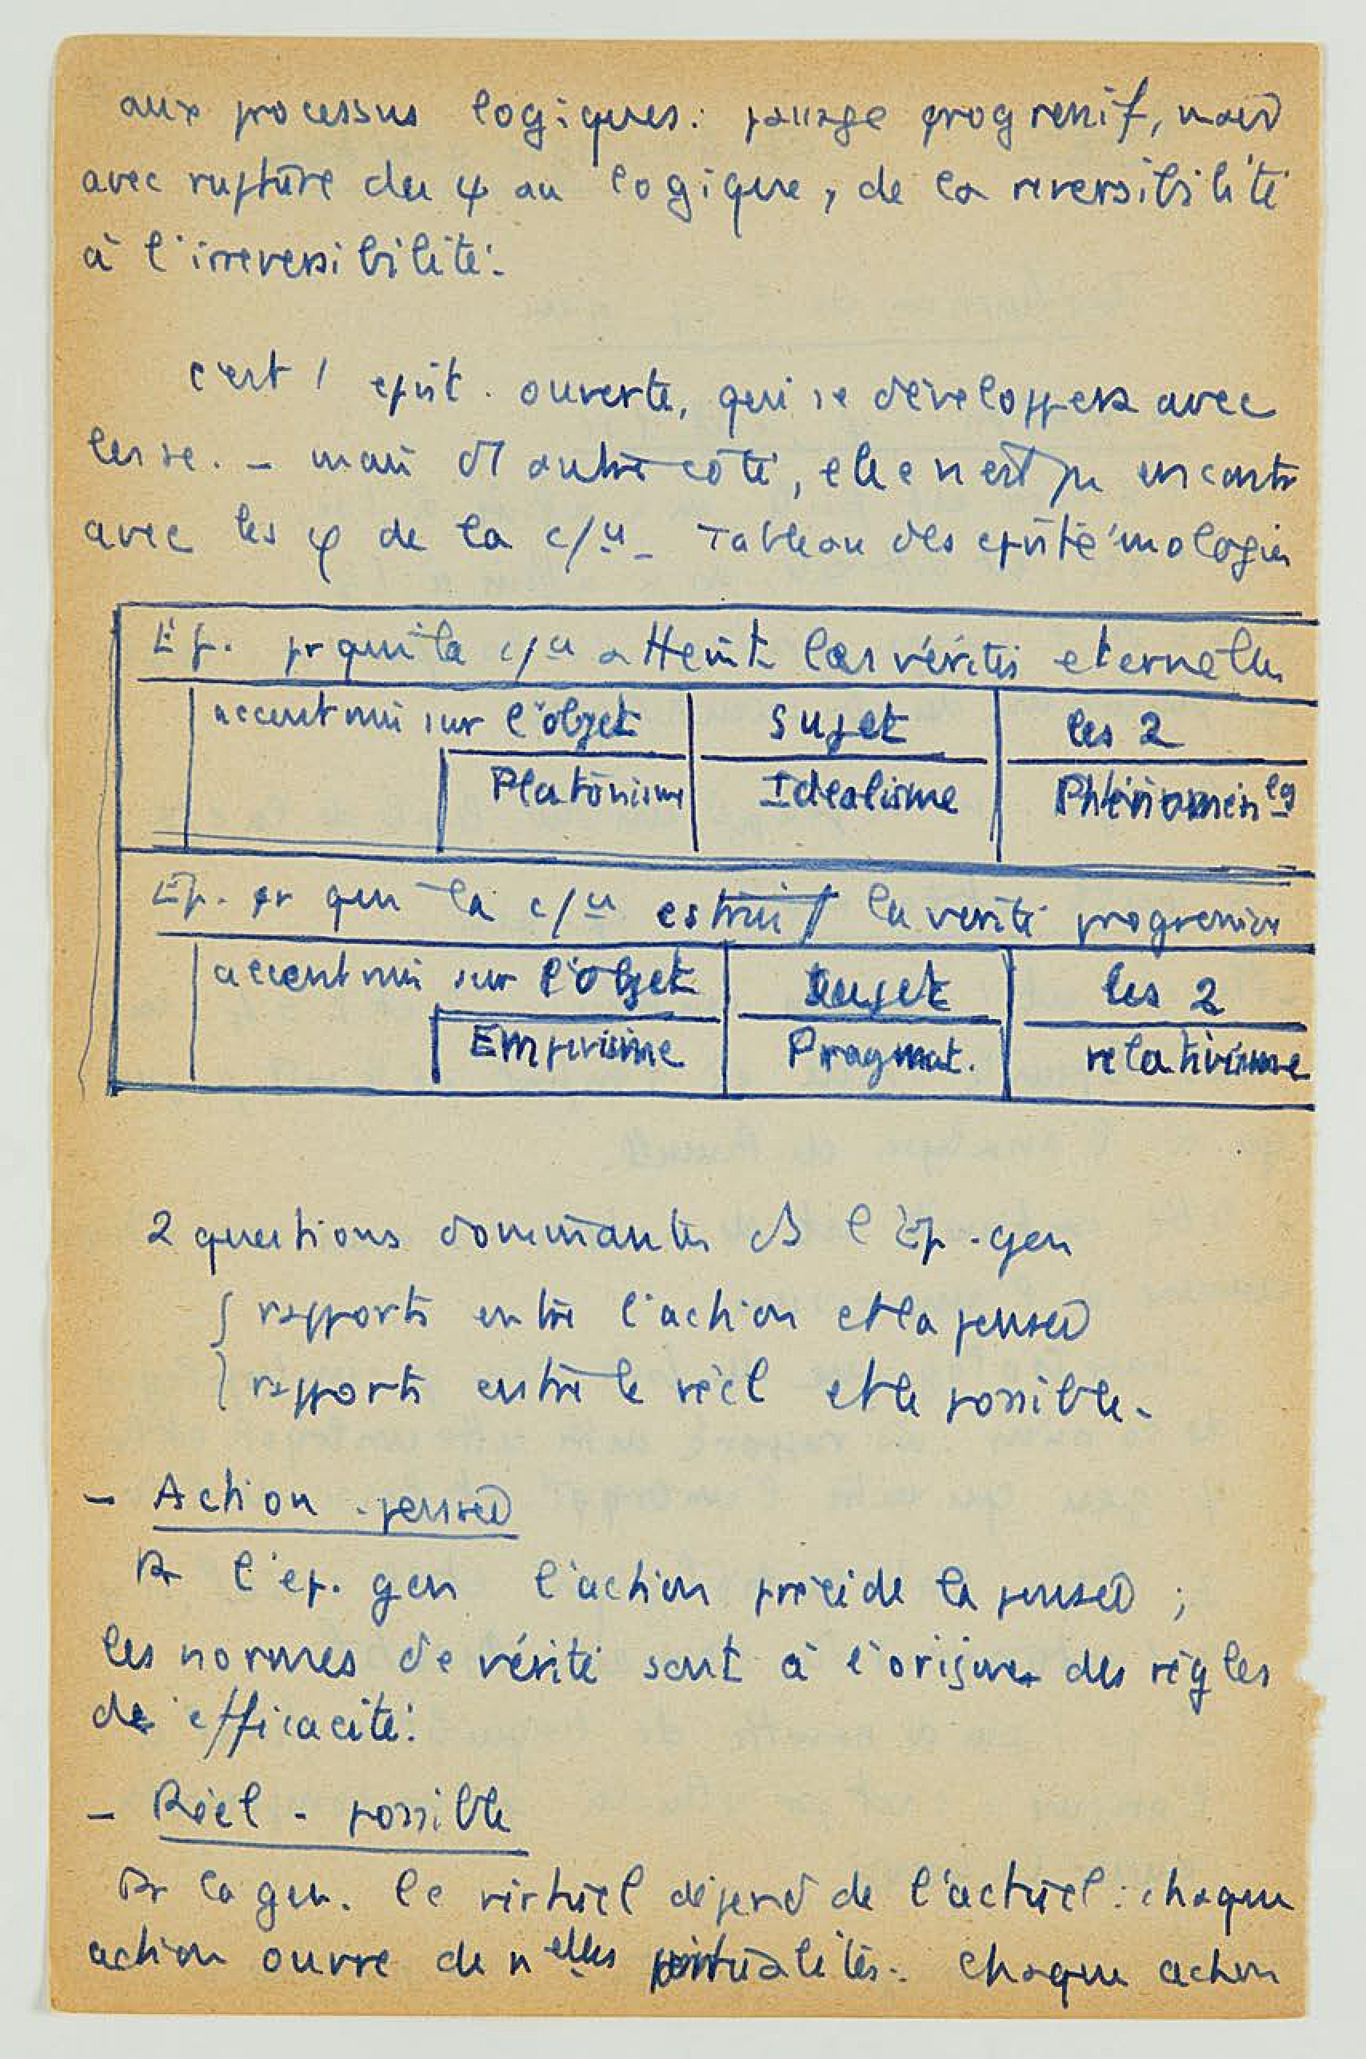 aux processus logiques : passage progressif, mais
avec rupture du φ au logique, de la reversibilité
à l'irreversibilité.
c'est 1 epist. ouverte, qui se développera avec
mais d'1 autre côté, elle n'est pas en
avec les φ de la c/ce - Tableau des epistémologies
Ép. pr qui la c/ce atteint les vérités eternelles
accent mis sur l'objet Sujet les 2
Platonisme Idealisme Phénoménlg
Ep. pr qui la c/ce la verité progressive
accent mis sur l'objet sujet les 2
Empirisme Pragmat. relativisme
2 questions dominantes ds l'Ep. gen
{ rapports entre l'action et la pensée
rapports entre le réel et le possible.
- Action - pensée
Pr l'ep. gen l'action précède la pensée ;
les normes de vérité sont à l'origine des règles
de efficacité.
- Réel - possible
Pr la gen. le virtuel dépend de l'actuel : chaque
action ouvre de nelles virtualités. Chaque action